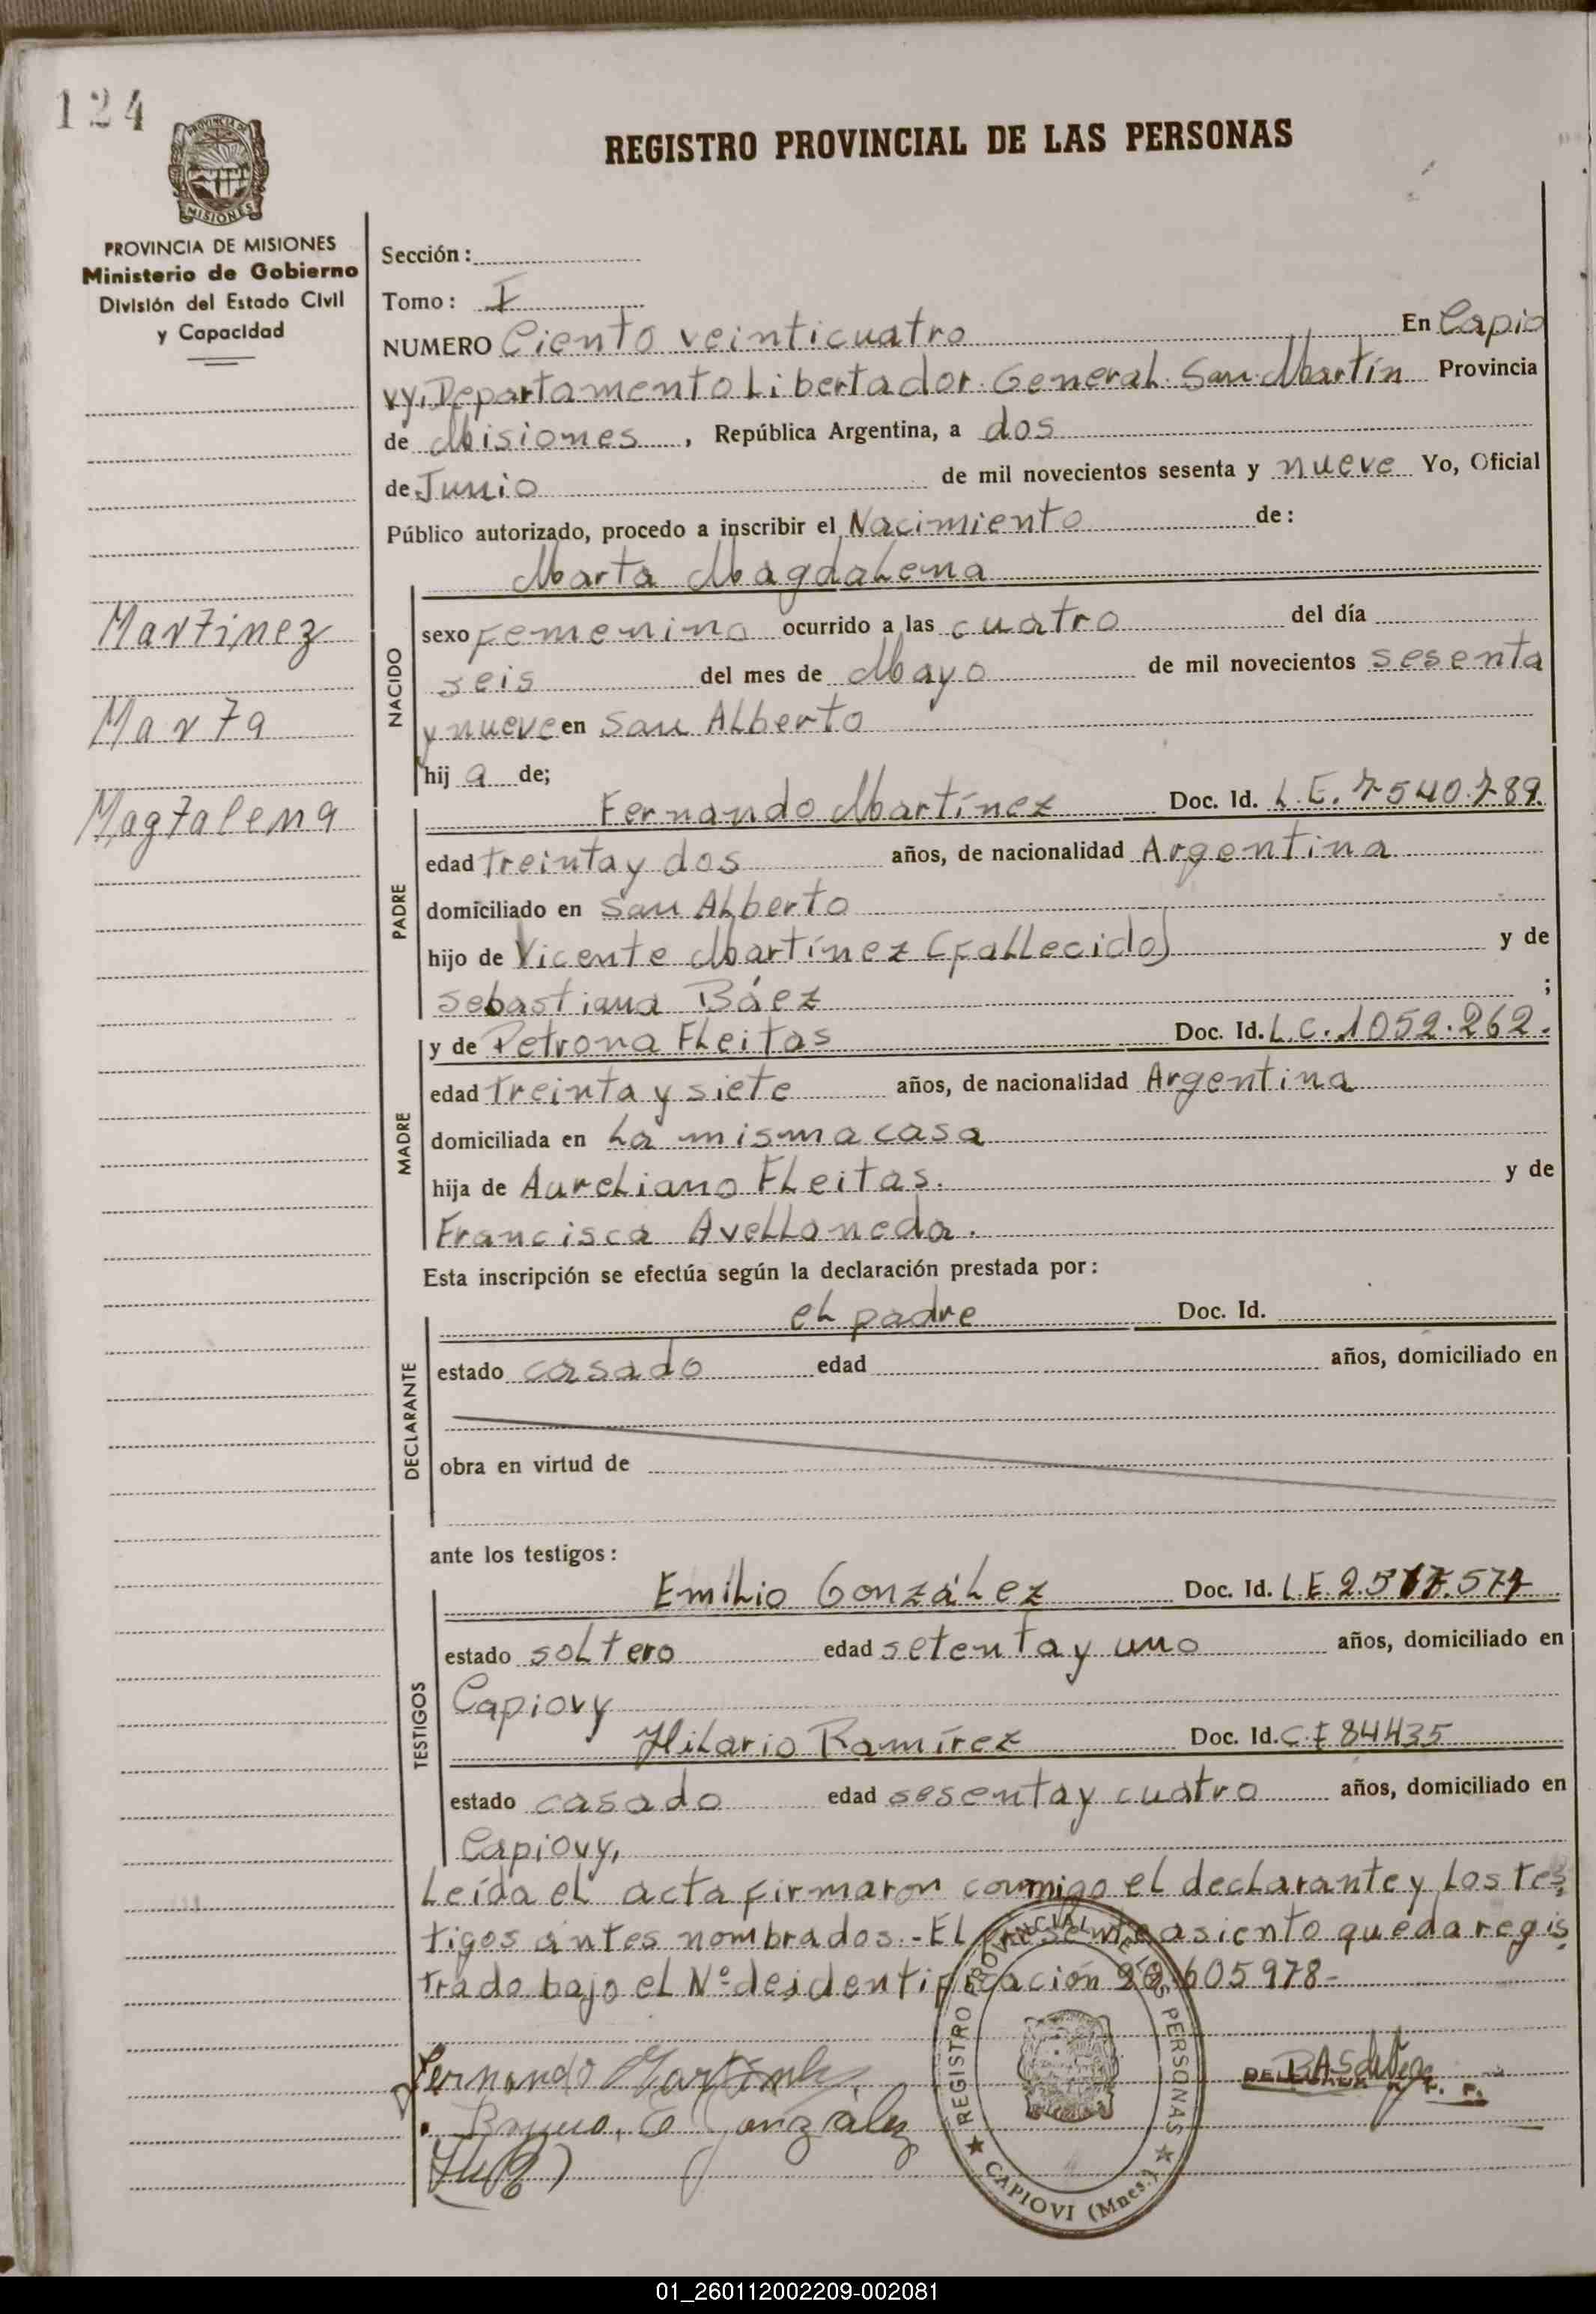 124
PROVINCIA DE
MISIONES
REGISTRO PROVINCIAL DE LAS PERSONAS
PROVINCIA DE MISIONES
Ministerio de Gobierno
División del Estado Civil
y Capacidad
Sección:
Tomo: I
NUMERO Ciento veinticuatro En Capio
vy, Departamento Libertador General San Martín Provincia
de Misiones, República Argentina, a dos
de Junio de mil novecientos sesenta y nueve Yo, Oficial
Público autorizado, procedo a inscribir el Nacimiento de:
Marta Magdalena
Martinez
Marta
Magdalena
NACIDO
sexo femenino ocurrido a las cuatro del día
seis del mes de Mayo de mil novecientos sesenta
y nueve en San Alberto
hija de;
PADRE
Fernando Martínez Doc. Id. L.E. 7540.789
edad treinta y dos años, de nacionalidad Argentina
domiciliado en San Alberto
hijo de Vicente Martínez (fallecido) y de
Sebastiana Báez ;
MADRE
y de Petrona Fleitas Doc. Id. L.C. 1052.262.
edad treinta y siete años, de nacionalidad Argentina
domiciliada en la misma casa
hija de Aureliano Fleitas. y de
Francisca Avellaneda.
Esta inscripción se efectúa según la declaración prestada por:
DECLARANTE
el padre Doc. Id.
estado casado edad años, domiciliado en
obra en virtud de
ante los testigos:
TESTIGOS
Emilio González Doc. Id. L.E.
estado soltero edad setenta y uno años, domiciliado en
Capiovy
Hilario Ramírez Doc. Id. C.I 84435
estado casado edad sesenta y cuatro años, domiciliado en
Capiovy,
Leída el acta firmaron conmigo el declarante y los tes
tigos antes nombrados.- El presente asiento queda regis
trado bajo el Nº de identificación 20.605978-
Fernando Martínez
González
REGISTRO PROVINCIAL DE LAS PERSONAS
CAPIOVI (Mnes.)
01_260112002209-002081